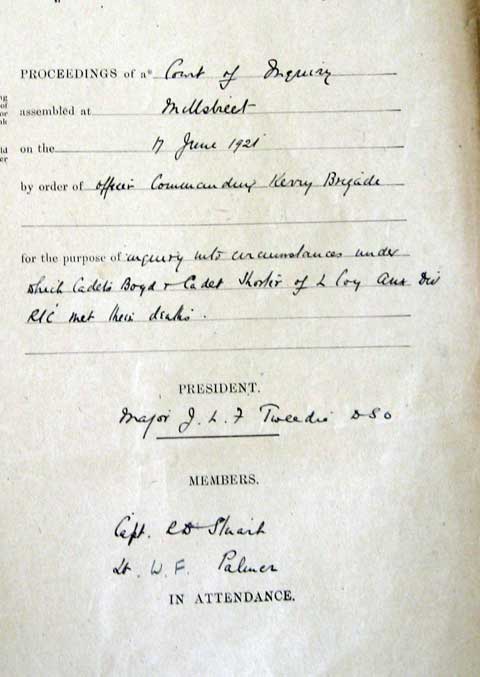 PROCEEDINGS of a* Court of Inquiry
assembled at Millstreet
on the 17 June 1921
by order of Officer Commanding Kerry Brigade
for the purpose of inquiry into circumstances under
which Cadets Boyd & Cadet Shorter of L Coy Aux Div
RIC met their deaths.
PRESIDENT.
Major J. L. F Tweedie DSO
MEMBERS.
Capt. R D Stuart
Lt. W. F. Palmer
IN ATTENDANCE.